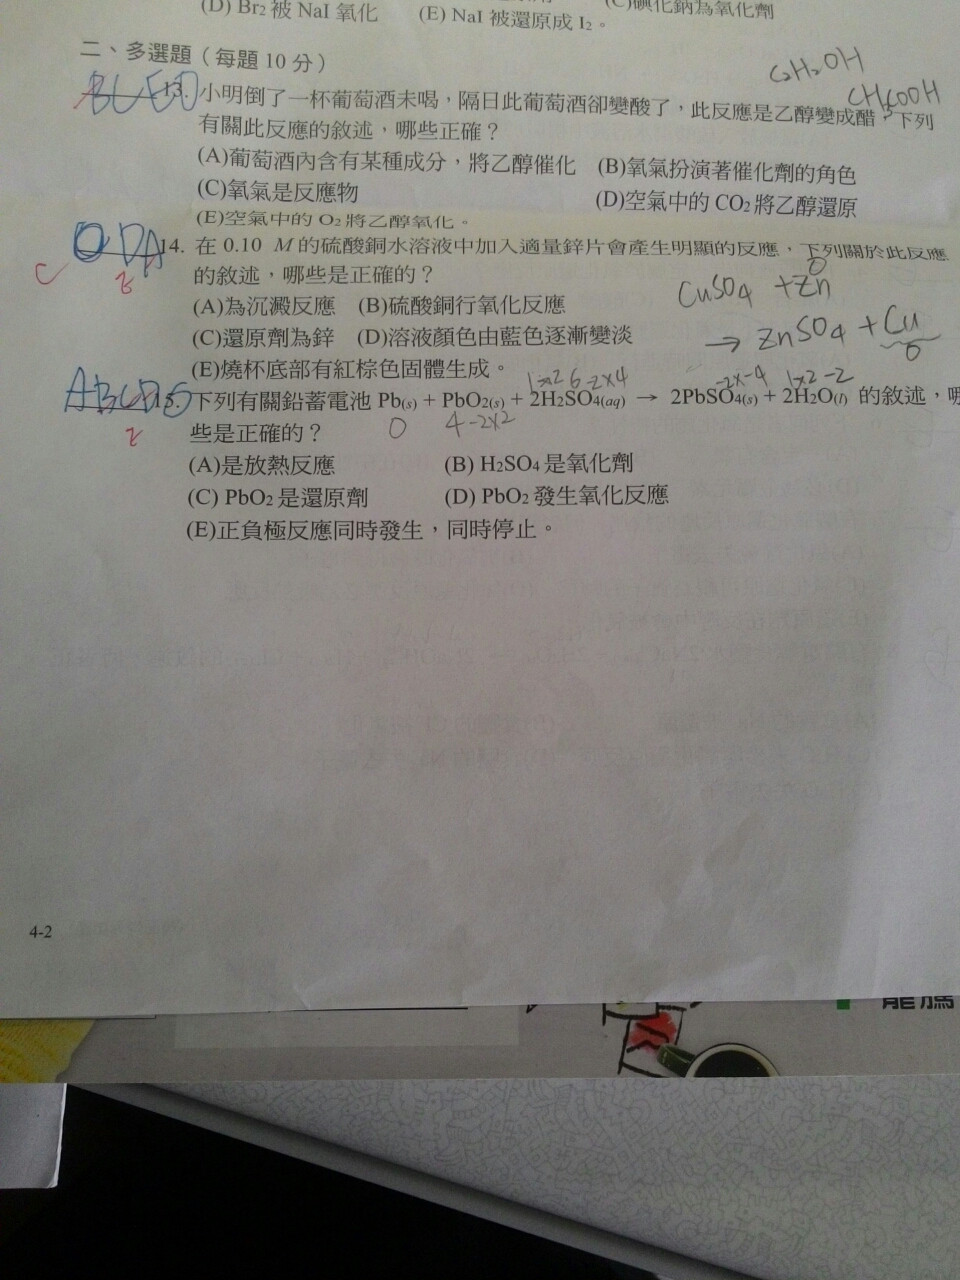 (D) Br₂ 被 NaI 氧化 (E) NaI 被還原成 I₂。 (C)碘化鈉為氧化劑
二、多選題（每題 10 分）
C₂H₂OH
CH₃COOH
13. 小明倒了一杯葡萄酒未喝，隔日此葡萄酒卻變酸了，此反應是乙醇變成醋，下列
有關此反應的敘述，哪些正確？
(A)葡萄酒內含有某種成分，將乙醇催化 (B)氧氣扮演著催化劑的角色
(C)氧氣是反應物 (D)空氣中的 CO₂ 將乙醇還原
(E)空氣中的 O₂ 將乙醇氧化。
14. 在 0.10 M 的硫酸銅水溶液中加入適量鋅片會產生明顯的反應，下列關於此反應
C
的敘述，哪些是正確的？
0
CuSO₄ + Zn
(A)為沉澱反應 (B)硫酸銅行氧化反應
→ ZnSO₄ + Cu
0
(C)還原劑為鋅 (D)溶液顏色由藍色逐漸變淡
(E)燒杯底部有紅棕色固體生成。
15. 下列有關鉛蓄電池 Pb(s) + PbO₂(s) + 2H₂SO₄(aq) → 2PbSO₄(s) + 2H₂O(l) 的敘述，哪
0 4-2x2
些是正確的？
(A)是放熱反應 (B) H₂SO₄ 是氧化劑
(C) PbO₂ 是還原劑 (D) PbO₂ 發生氧化反應
(E)正負極反應同時發生，同時停止。
4-2